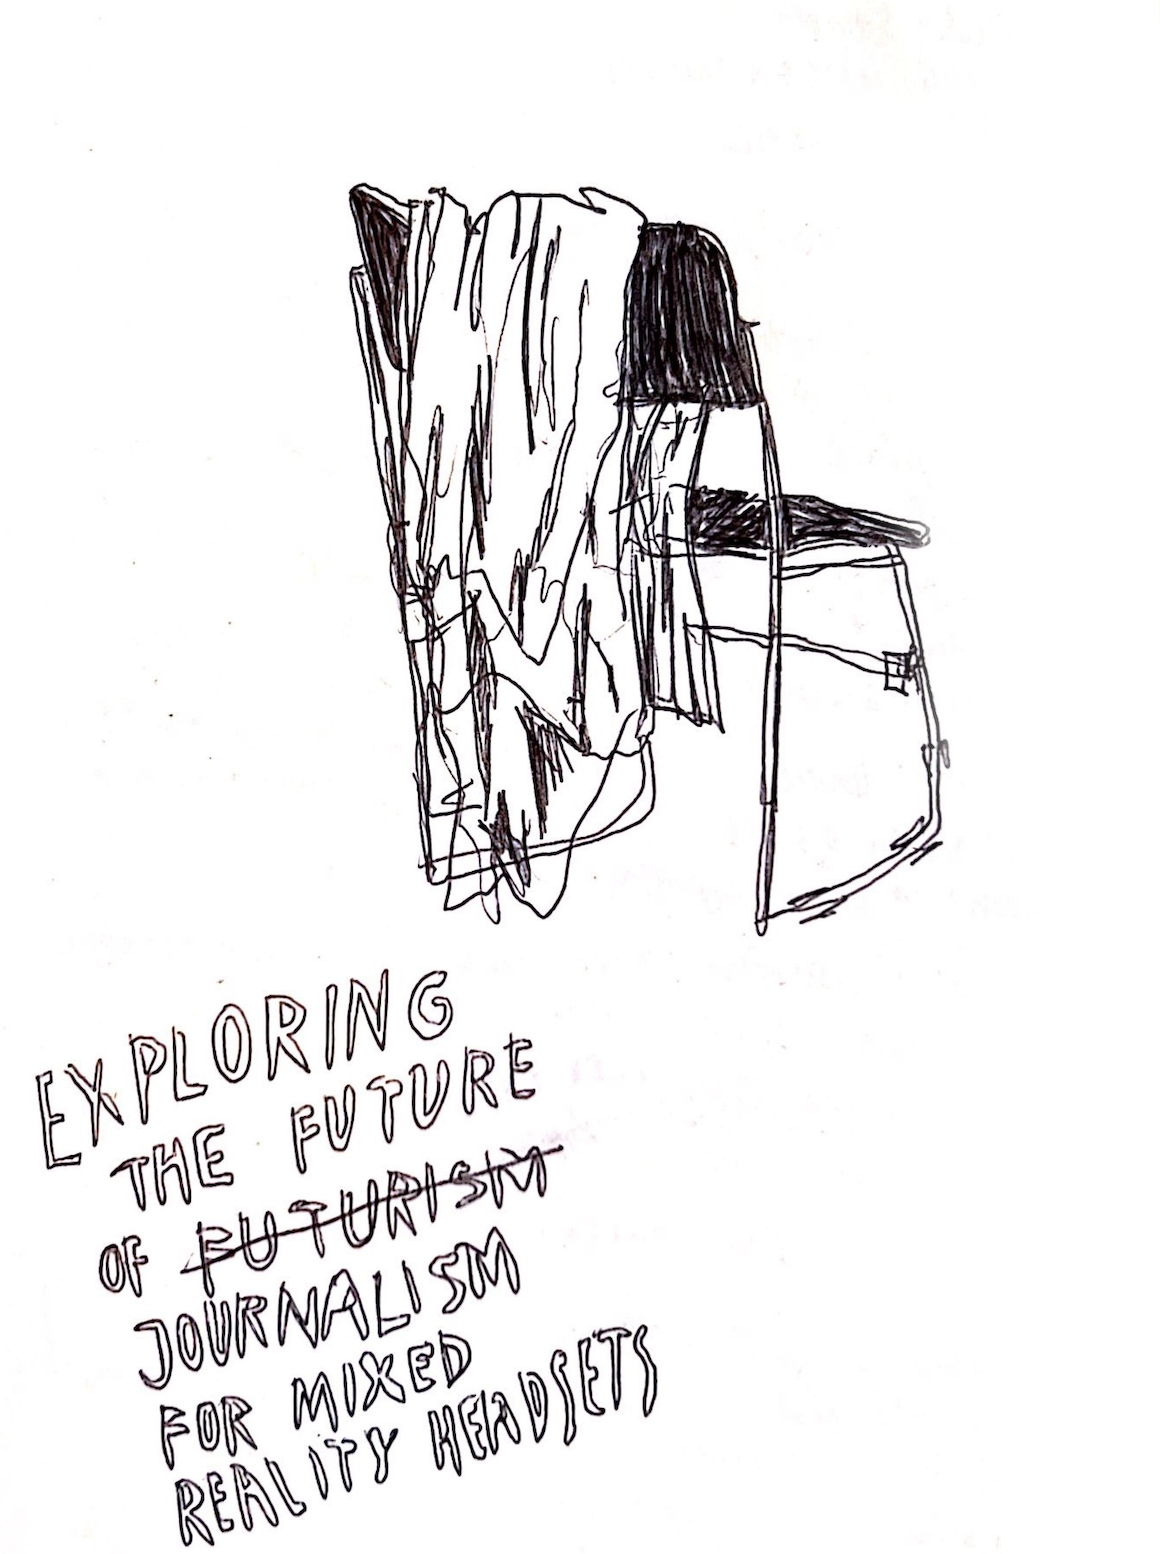 EXPLORING
THE FUTURE
OF FUTURISM
JOURNALISM
FOR MIXED
REALITY HEADSETS